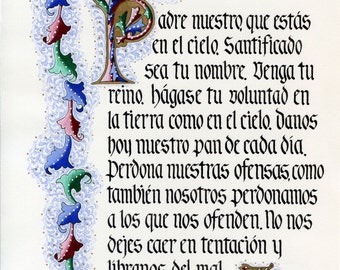 Padre nuestro, que estás
en el cielo. Santificado
sea tu nombre. Venga tu
reino. hágase tu voluntad en
la tierra como en el cielo. danos
hoy nuestro pan de cada día.
Perdona nuestras ofensas, como
también nosotros perdonamos
a los que nos ofenden. No nos
dejes caer en tentación y
líbranos del mal.